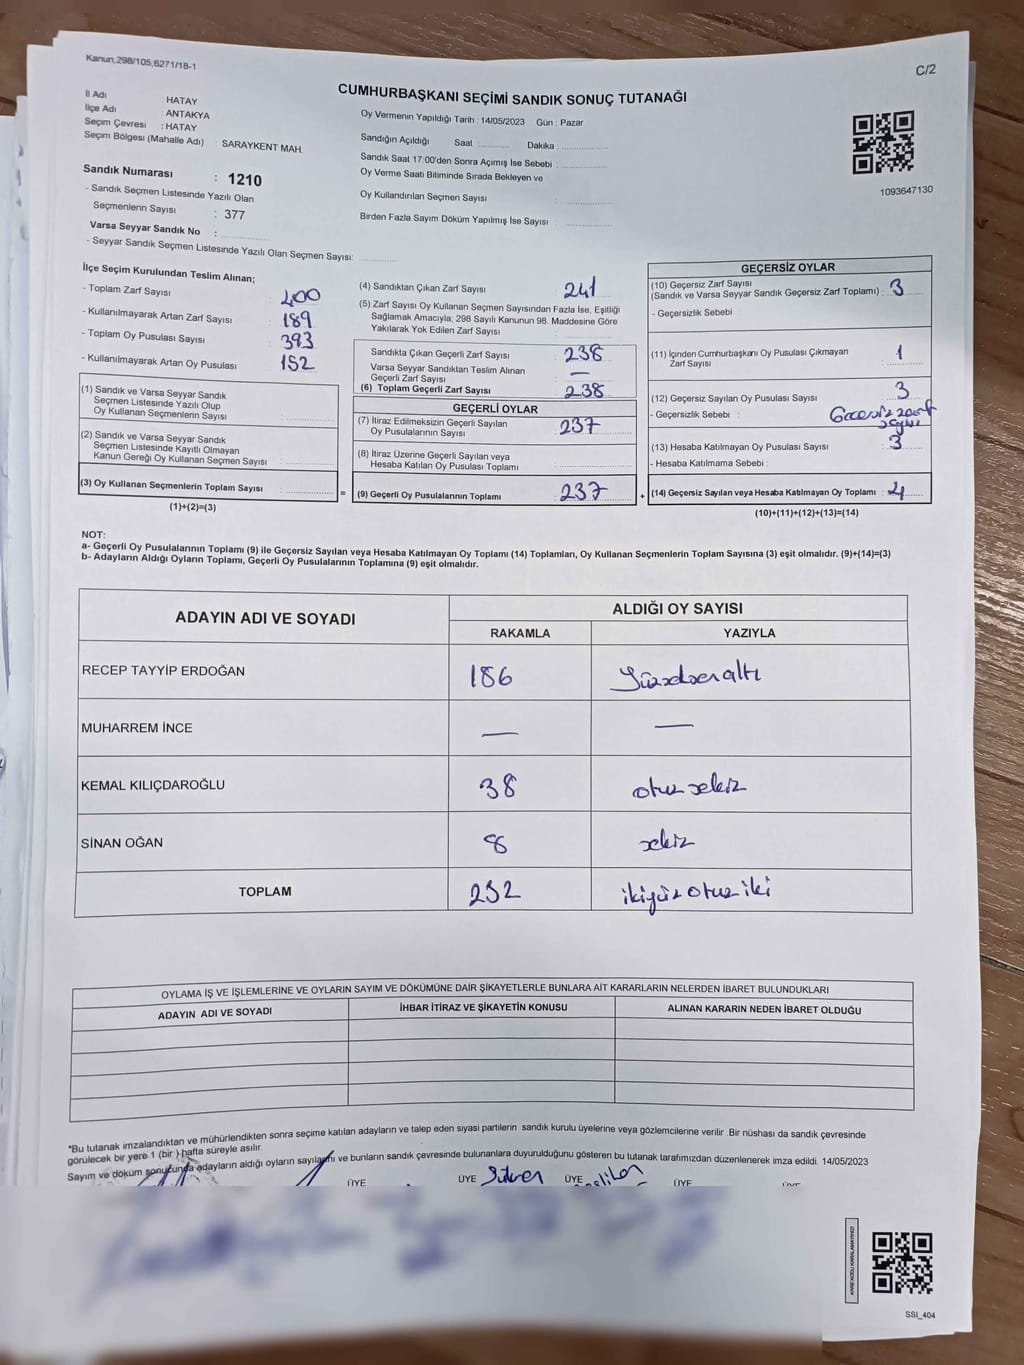 Kanun,298/105,6271/18-1
C/2
CUMHURBAŞKANI SEÇİMİ SANDIK SONUÇ TUTANAĞI
İl Adı HATAY
İlçe Adı : ANTAKYA
Seçim Çevresi : HATAY
Seçim Bölgesi (Mahalle Adı) : SARAYKENT MAH.
Sandık Numarası : 1210
- Sandık Seçmen Listesinde Yazılı Olan
Seçmenlerin Sayısı : 377
Varsa Seyyar Sandık No :
- Seyyar Sandık Seçmen Listesinde Yazılı Olan Seçmen Sayısı:
Oy Vermenin Yapıldığı Tarih : 14/05/2023 Gün : Pazar
Sandığın Açıldığı Saat Dakika :
Sandık Saat 17:00'den Sonra Açımış İse Sebebi :
Oy Verme Saati Bitiminde Sırada Bekleyen ve
Oy Kullandırılan Seçmen Sayısı :
Birden Fazla Sayım Döküm Yapılmış İse Sayısı :
1093647130
İlçe Seçim Kurulundan Teslim Alınan;
- Toplam Zarf Sayısı : 400
- Kullanılmayarak Artan Zarf Sayısı : 189
- Toplam Oy Pusulası Sayısı : 393
- Kullanılmayarak Artan Oy Pusulası : 152
(1) Sandık ve Varsa Seyyar Sandık
Seçmen Listesinde Yazılı Olup
Oy Kullanan Seçmenlerin Sayısı :
(2) Sandık ve Varsa Seyyar Sandık
Seçmen Listesinde Kayıtlı Olmayan
Kanun Gereği Oy Kullanan Seçmen Sayısı :
(3) Oy Kullanan Seçmenlerin Toplam Sayısı :
(1)+(2)=(3)
(4) Sandıktan Çıkan Zarf Sayısı : 241
(5) Zarf Sayısı Oy Kullanan Seçmen Sayısından Fazla İse, Eşitliği
Sağlamak Amacıyla, 298 Sayılı Kanunun 98. Maddesine Göre
Yakılarak Yok Edilen Zarf Sayısı :
Sandıkta Çıkan Geçerli Zarf Sayısı : 238
Varsa Seyyar Sandıktan Teslim Alınan
Geçerli Zarf Sayısı : —
(6) Toplam Geçerli Zarf Sayısı : 238
GEÇERLİ OYLAR
(7) İtiraz Edilmeksizin Geçerli Sayılan
Oy Pusulalarının Sayısı : 237
(8) İtiraz Üzerine Geçerli Sayılan veya
Hesaba Katılan Oy Pusulası Toplamı :
= (9) Geçerli Oy Pusulalarının Toplamı : 237
GEÇERSİZ OYLAR
(10) Geçersiz Zarf Sayısı
(Sandık ve Varsa Seyyar Sandık Geçersiz Zarf Toplamı) : 3
- Geçersizlik Sebebi
(11) İçinden Cumhurbaşkanı Oy Pusulası Çıkmayan
Zarf Sayısı : 1
(12) Geçersiz Sayılan Oy Pusulası Sayısı : 3
- Geçersizlik Sebebi : Geçersiz zarf
sayısı
(13) Hesaba Katılmayan Oy Pusulası Sayısı : 3
- Hesaba Katılmama Sebebi :
+ (14) Geçersiz Sayılan veya Hesaba Katılmayan Oy Toplamı : 4
(10)+(11)+(12)+(13)=(14)
NOT:
a- Geçerli Oy Pusulalarının Toplamı (9) ile Geçersiz Sayılan veya Hesaba Katılmayan Oy Toplamı (14) Toplamları, Oy Kullanan Seçmenlerin Toplam Sayısına (3) eşit olmalıdır. (9)+(14)=(3)
b- Adayların Aldığı Oyların Toplamı, Geçerli Oy Pusulalarının Toplamına (9) eşit olmalıdır.
ADAYIN ADI VE SOYADI ALDIĞI OY SAYISI
RAKAMLA YAZIYLA
RECEP TAYYİP ERDOĞAN 186 Yüzseksenaltı
MUHARREM İNCE — —
KEMAL KILIÇDAROĞLU 38 otuz sekiz
SİNAN OĞAN 8 sekiz
TOPLAM 232 ikiyüz otuz iki
OYLAMA İŞ VE İŞLEMLERİNE VE OYLARIN SAYIM VE DÖKÜMÜNE DAİR ŞİKAYETLERLE BUNLARA AİT KARARLARIN NELERDEN İBARET BULUNDUKLARI
ADAYIN ADI VE SOYADI İHBAR İTİRAZ VE ŞİKAYETİN KONUSU ALINAN KARARIN NEDEN İBARET OLDUĞU
*Bu tutanak imzalandıktan ve mühürlendikten sonra seçime katılan adayların ve talep eden siyasi partilerin sandık kurulu üyelerine veya gözlemcilerine verilir .Bir nüshası da sandık çevresinde
görülecek bir yere 1 (bir ) hafta süreyle asılır.
Sayım ve döküm sonucunda adayların aldığı oyların sayılarını ve bunların sandık çevresinde bulunanlara duyurulduğunu gösteren bu tutanak tarafımızdan düzenlenerek imza edildi. 14/05/2023
ÜYE ÜYE ÜYE ÜYE
SSİ_404